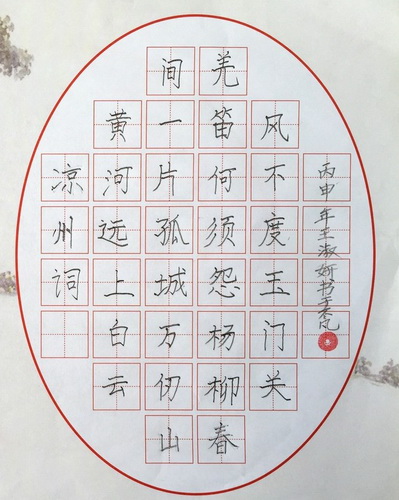 凉州词
黄河远上白云
间一片孤城万仞山
羌笛何须怨杨柳春
风不度玉门关
丙申年王淑妍书于